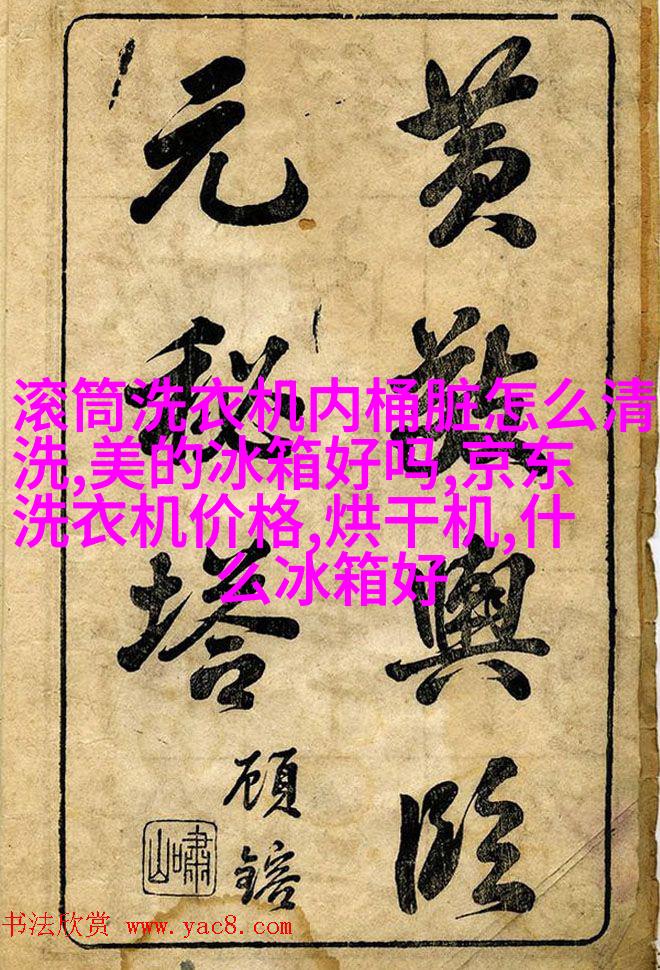 黄敬輿臨
元秘塔
顾鎔
嘯山
滚筒洗衣机内桶脏怎么清
洗,美的冰箱好吗,京东
洗衣机价格,烘干机,什
么冰箱好
书法欣赏 www.yac8.com